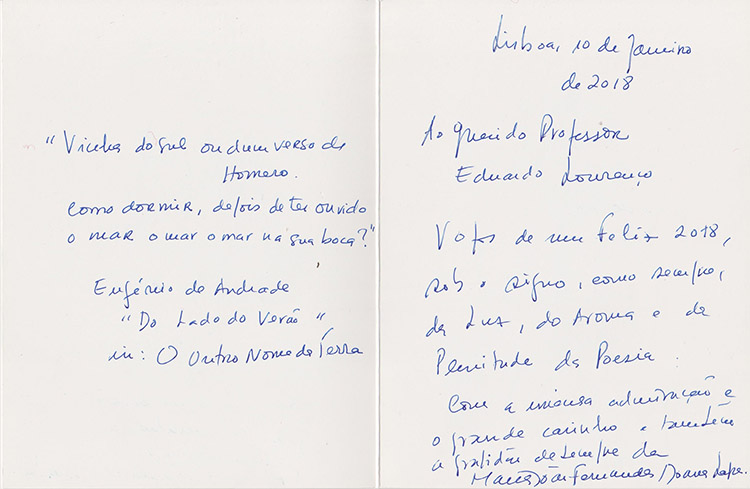 "Vinha do sul ou dum verso de
Homero.
Como dormir, depois de ter ouvido
o mar o mar o mar na sua boca?"
Eugénio de Andrade
"Do Lado do Verão"
in: O Outro Nome da Terra
Lisboa, 10 de Janeiro
de 2018
Ao querido Professor
Eduardo Lourenço
Votos de um Feliz 2018,
sob o signo, como sempre,
da Luz, do Aroma e da
Plenitude da Poesia.
Com a imensa admiração e
o grande carinho e também
a gratidão de sempre da
Maria João Fernandes